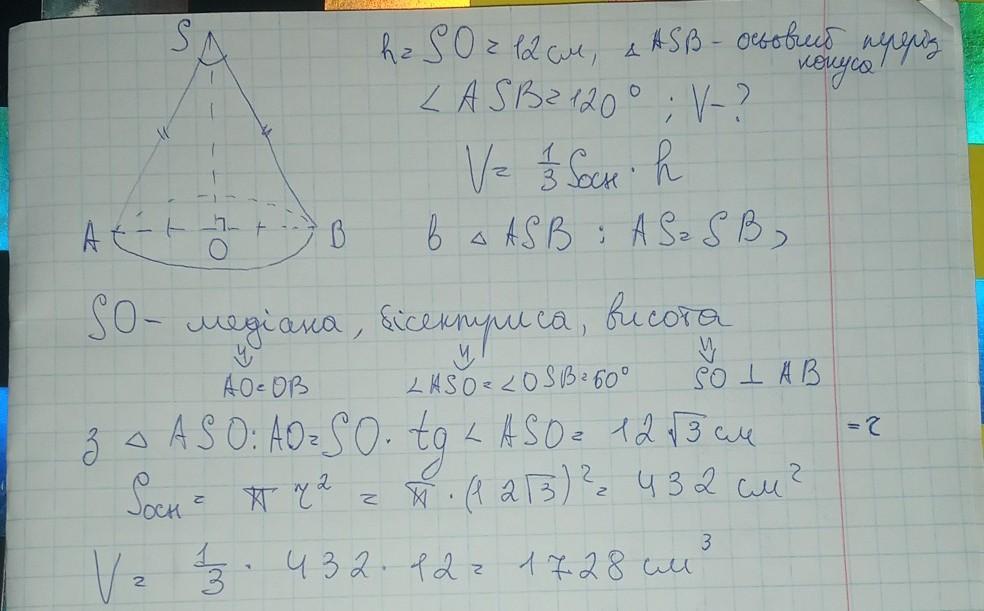 S
h = SO = 12 см, △ ASB - осьовий переріз конуса
∠ ASB = 120° ; V - ?
V = 1/3 Sосн · h
A O B
в △ ASB : AS = SB,
SO - медіана, бісектриса, висота
⇓ ⇓ ⇓
AO = OB ∠ASO = ∠OSB = 60° SO ⊥ AB
з △ ASO: AO = SO · tg ∠ ASO = 12√3 см = r
Sосн = π r² = π · (12√3)² = 432 см²
V = 1/3 · 432 · 12 = 1728 см³